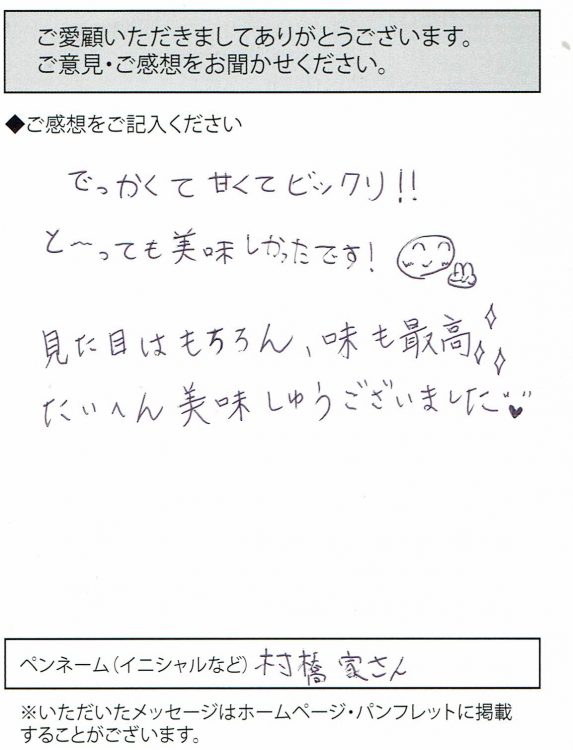 ご愛顧いただきましてありがとうございます。
ご意見・ご感想をお聞かせください。
◆ご感想をご記入ください
でっかくて甘くてビックリ!!
と〜っても美味しかったです!
見た目はもちろん、味も最高
たいへん美味しゅうございました♥
ペンネーム(イニシャルなど) 村橋家さん
※いただいたメッセージはホームページ・パンフレットに掲載
することがございます。